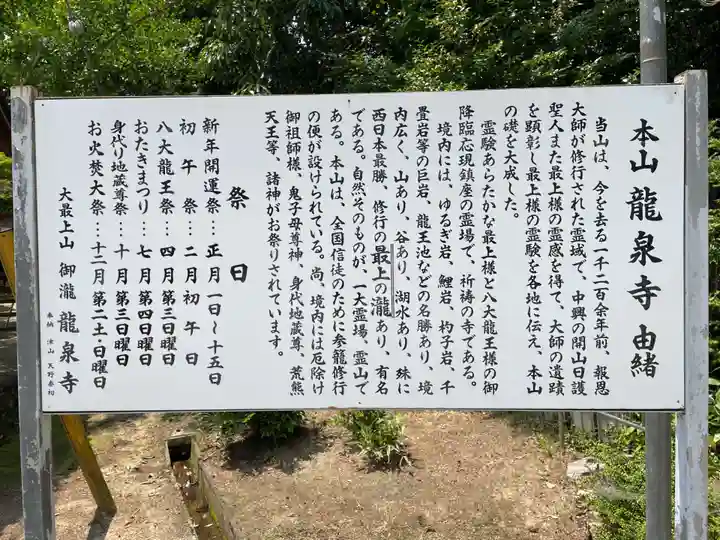 本山 龍泉寺 由緒
当山は、今を去る一千二百余年前、報恩
大師が修行された霊域で、中興の開山日護
聖人また最上様の霊感を得て、大師の遺蹟
を顕彰し最上様の霊験を各地に伝え、本山
の礎を大成した。
霊験あらたかな最上様と八大龍王様の御
降臨応現鎮座の霊場で、祈祷の寺である。
境内には、ゆるぎ岩、鯉岩、杓子岩、千
畳岩等の巨岩、龍王池などの名勝あり、境
内広く、山あり、谷あり、湖水あり、殊に
西日本最勝、修行の最上の瀧あり、有名
である。自然そのものが、一大霊場、霊山で
ある。本山は、全国信徒のために参籠修行
の便が設けられている。尚、境内には厄除け
御祖師様、鬼子母尊神、身代地蔵尊、荒熊
天王等、諸神がお祭りされています。
祭日
新年開運祭…正月一日〜十五日
初午祭…二月初午日
八大龍王祭…四月第三日曜日
おたきまつり…七月第四日曜日
身代り地蔵尊祭…十月第三日曜日
お火焚大祭…十二月第二土・日曜日
大最上山 御瀧 龍泉寺
奉納 津山 天野春初